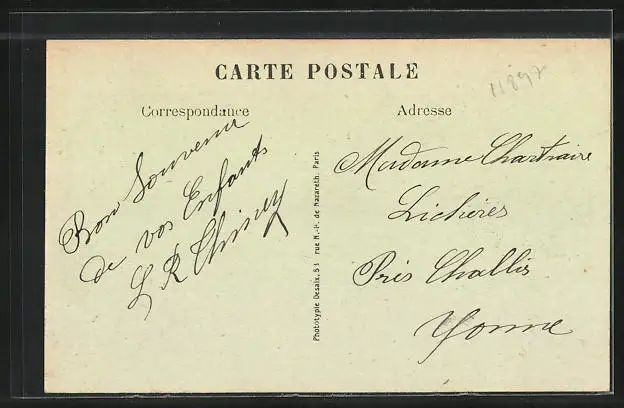 CARTE POSTALE
11897
Correspondance
Adresse
Bon Souvenir
de vos Enfants
L R Thiney
Madame Chartraire
Lichères
Près Challis
Yonne
Phototypie Desaix, 53 rue N.-H. de Nazareth. Paris